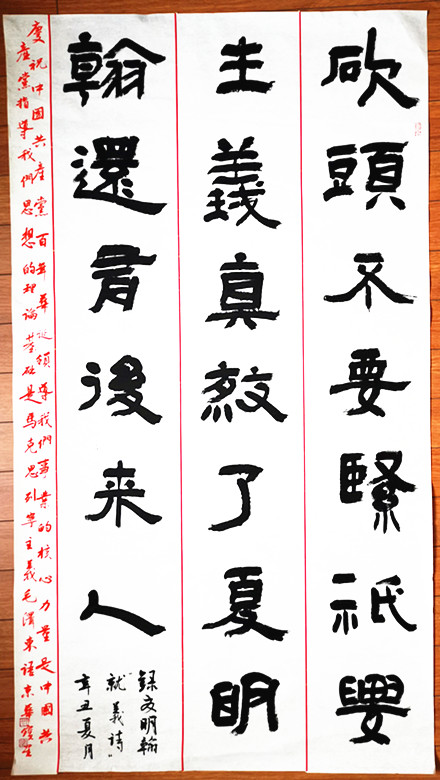 砍頭不要緊祇要
主義真殺了夏明
翰還有後来人
錄夏明翰
就義詩
辛丑夏月
慶祝中國共產黨百年華誕領導我們事業的核心力量是中國共
產黨指導我們思想的理論基础是馬克思列寧主義毛澤東語京華